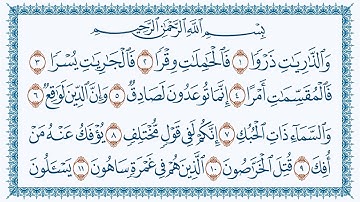 بِسْمِ اللَّهِ الرَّحْمَٰنِ الرَّحِيمِ
وَالذَّارِيَاتِ ذَرْوًا ١ فَالْحَامِلَاتِ وِقْرًا ٢ فَالْجَارِيَاتِ يُسْرًا ٣
فَالْمُقَسِّمَاتِ أَمْرًا ٤ إِنَّمَا تُوعَدُونَ لَصَادِقٌ ٥ وَإِنَّ الدِّينَ لَوَاقِعٌ ٦
وَالسَّمَاءِ ذَاتِ الْحُبُكِ ٧ إِنَّكُمْ لَفِي قَوْلٍ مُخْتَلِفٍ ٨ يُؤْفَكُ عَنْهُ مَنْ
أُفِكَ ٩ قُتِلَ الْخَرَّاصُونَ ١٠ الَّذِينَ هُمْ فِي غَمْرَةٍ سَاهُونَ ١١ يَسْأَلُونَ